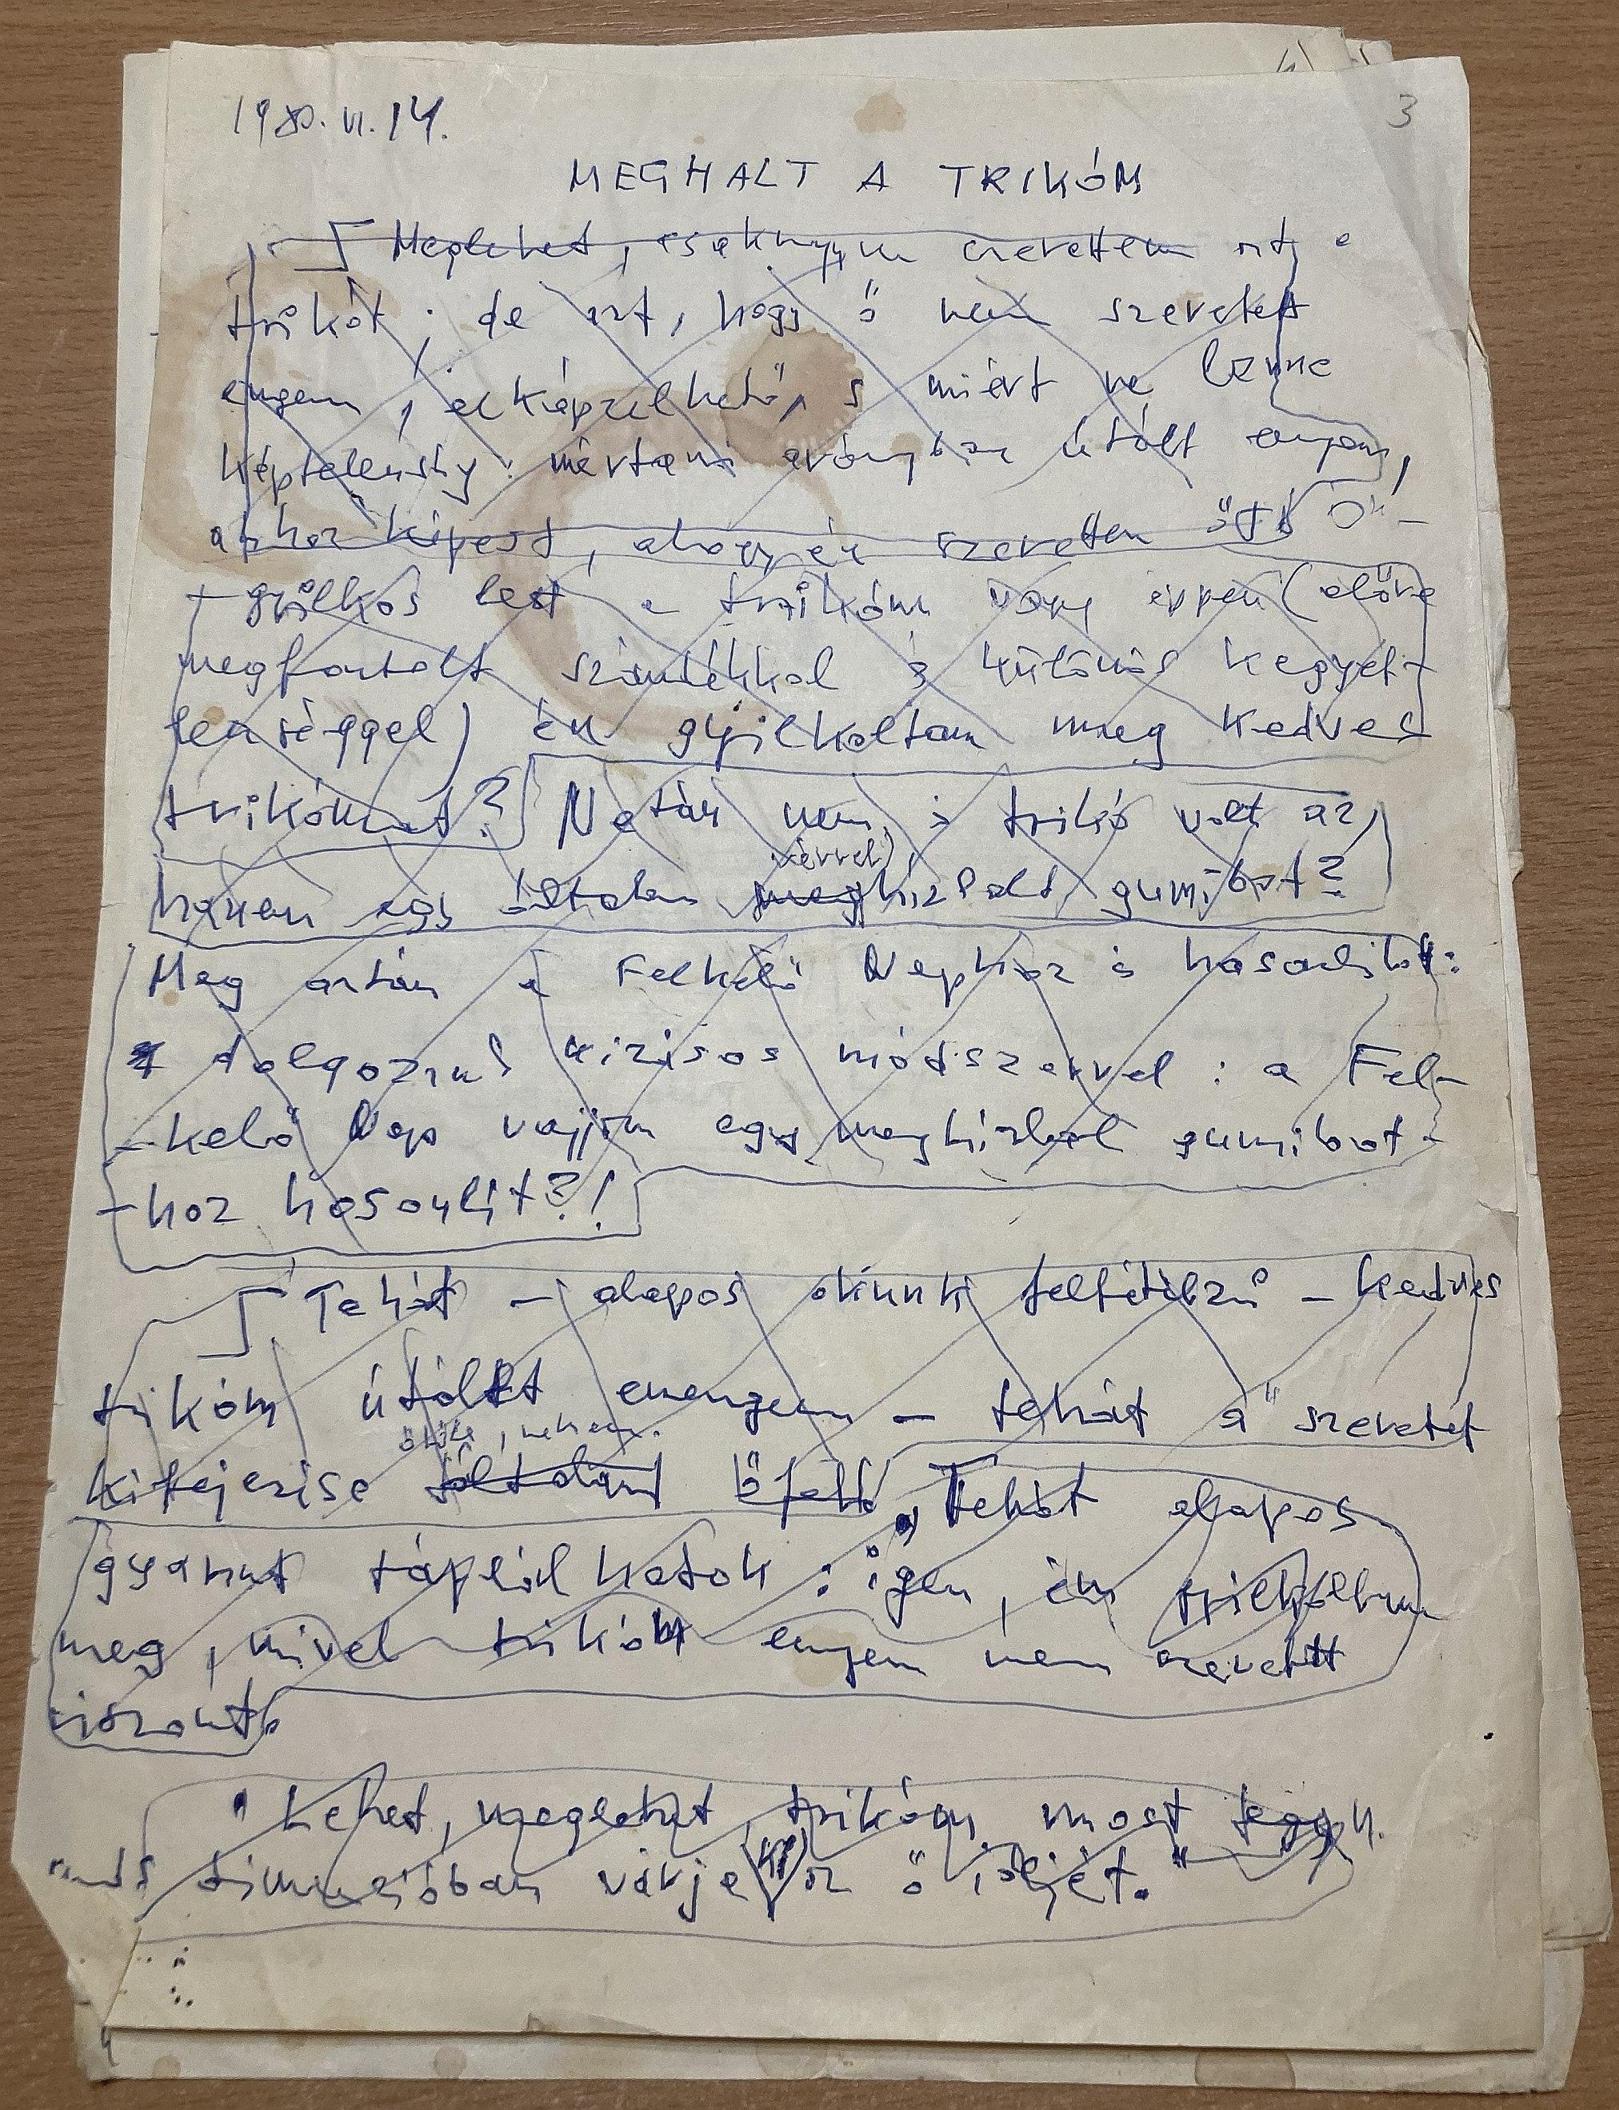 3
1980. VI. 14.
MEGHALT A TRIKÓM
Meglehet, csakugyan szerettem ezt a
trikót; de ezt, hogy ő nem szeretett
engem, elképzelhető, s miért ne lenne
képtelenség: mértani arányban útált engem,
ahhoz képest, ahogy én szerettem őt. Ö-
-gyilkos lett a trikóm vagy éppen (előre
megfontolt szándékkal s különös kegyet-
lenséggel) én gyilkoltam meg kedves
trikómat? Netán nem is trikó volt az,
érvel
hanem egy általam meghizlalt gumibot?
Meg aztán a Felkelő Naphoz is hasonlított:
dolgozzunk módszerrel: a Fel-
-kelő Nap vajjon egy meghizlalt gumibot-
-hoz hasonlít?!
Tehát – alapos okunk feltételezni – kedves
trikóm útált engem – tehát ő szeretet
kifejezése általam
Tehát alapos
gyanut táplálhatok: igen, én gyilkoltam
meg, mivel trikóm engem nem szeretett
viszont.
Lehet, meglehet, trikóm most egy
dimenzióban várja ki az ő idejét."